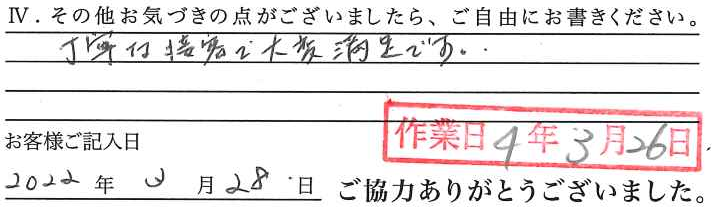 Ⅳ．その他お気づきの点がございましたら、ご自由にお書きください。
丁寧な接客で大変満足です。
作業日4年3月26日
お客様ご記入日
2022年3月28日 ご協力ありがとうございました。